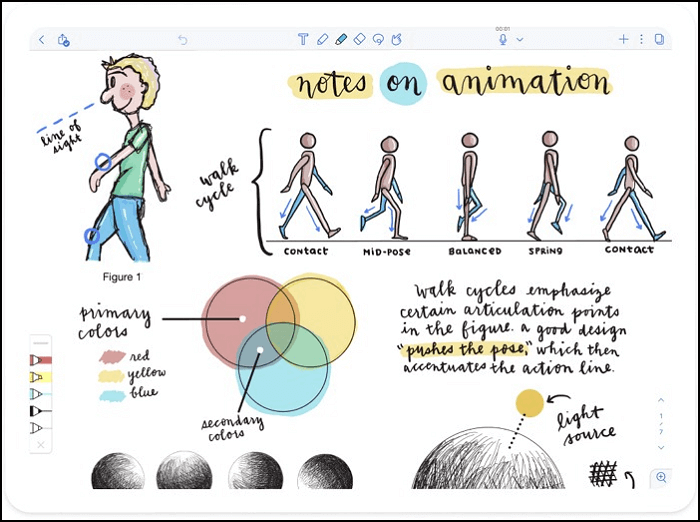 00:01
notes on animation
line of
sight
walk
cycle
CONTACT MID-POSE BALANCED SPRING CONTACT
Figure 1
primary
colors
red
yellow
blue
secondary
colors
Walk cycles emphasize
certain articulation points
in the figure. a good design
"pushes the pose," which then
accentuates the action line.
light
source
1
7